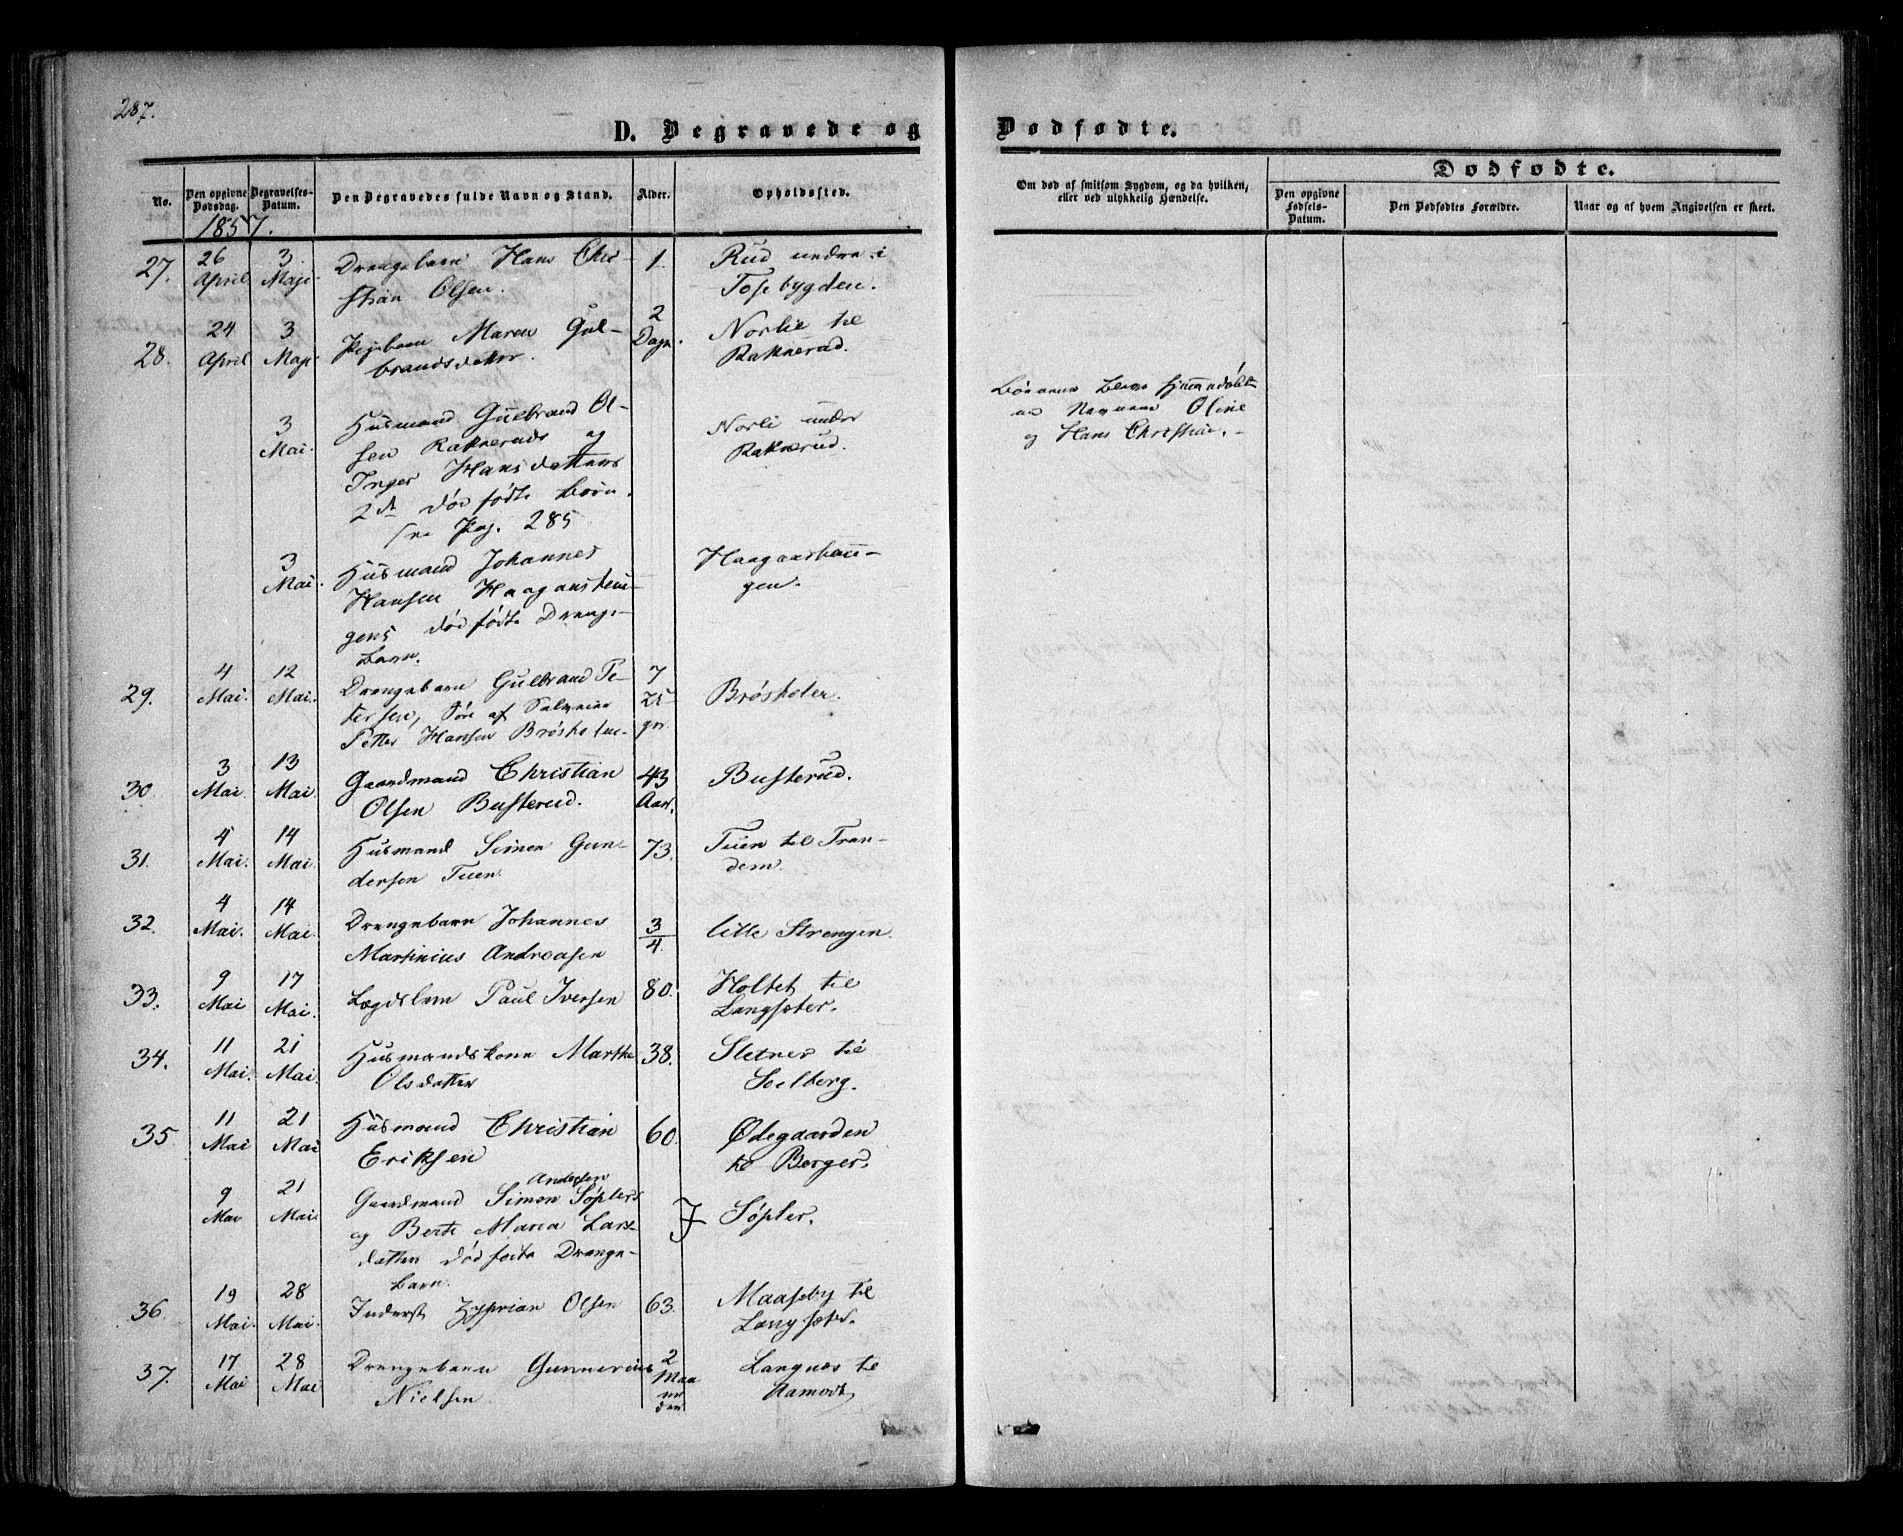 287.
D. Begravede og Dødfødte.
No.
Den opgivne Dødsdag.
Begravelses-Datum.
Den Begravedes fulde Navn og Stand.
Alder.
Opholdssted.
Om død af smitsom Sygdom, og da hvilken,
eller ved ulykkelig Hændelse.
Dødfødte.
Den opgivne Fødsels-Datum.
Den Dødfødtes Forældre.
Naar og af hvem Angivelsen er skeet.
1857.
27. 26 April 3 Maji Drengebarn Hans Chri- 1. Rud undra i
stian Olsen. Tosebygden.
28. 24 April 3 Maji Pigebarn Maren Gul- 2 Dage. Norlie til
brandsdatter. Raknerud.
3 Mai. Husmand Gulbrand Ol- Norli under
sen Raknerud og Raknerud.
Inger Hansdatters
2de dødfødte Børn.
Pag. 285
Børnene
Navnene Oline
og Hans Christian.
3 Mai. Husmand Johannes Haagaashaun-
Hansen Haagaashaun- gen.
gens dødfødte Drenge-
Barn.
29. 4 Mai. 12 Mai. Drengebarn Gulbrand Pe- 7 Brøsholen.
tersen, Søn af
Petter Hansen Brøsholen
30. 3 Mai. 13 Mai. Gaardmand Christian 43 Aar. Busterud.
Olsen Busterud.
31. 4 Mai. 14 Mai. Husmand Simen Gun- 73. Tuen til Tran-
dersen Tuen dem.
32. 4 Mai. 14 Mai. Drengebarn Johannes 3/4. lille Strengen.
Martinius Andreasen
33. 9 Mai 17 Mai. Lægdslem Paul Iversen 80. Holtet til
Langsæter.
34. 11 Mai. 21 Mai. Husmandskone Marthe 38. Sletner til
Olsdatter Soelberg.
35 11 Mai 21 Mai Husmand Christian 60. Ødegaarden
Eriksen til Berger.
9 Mai 21 Mai. Gaardmand Simon Andersen Søpler F Søpler.
og Berte Maria Lars-
datters dødfødte Drenge-
Barn.
36. 19 Mai. 28 Mai. Inderst Zyprian Olsen 63. Maaseby til
Langsæter.
37. 17 Mai 28 Mai Drengebarn Gunnerius 2 Maaneden Langnæs til
Nielsen. Kamodt